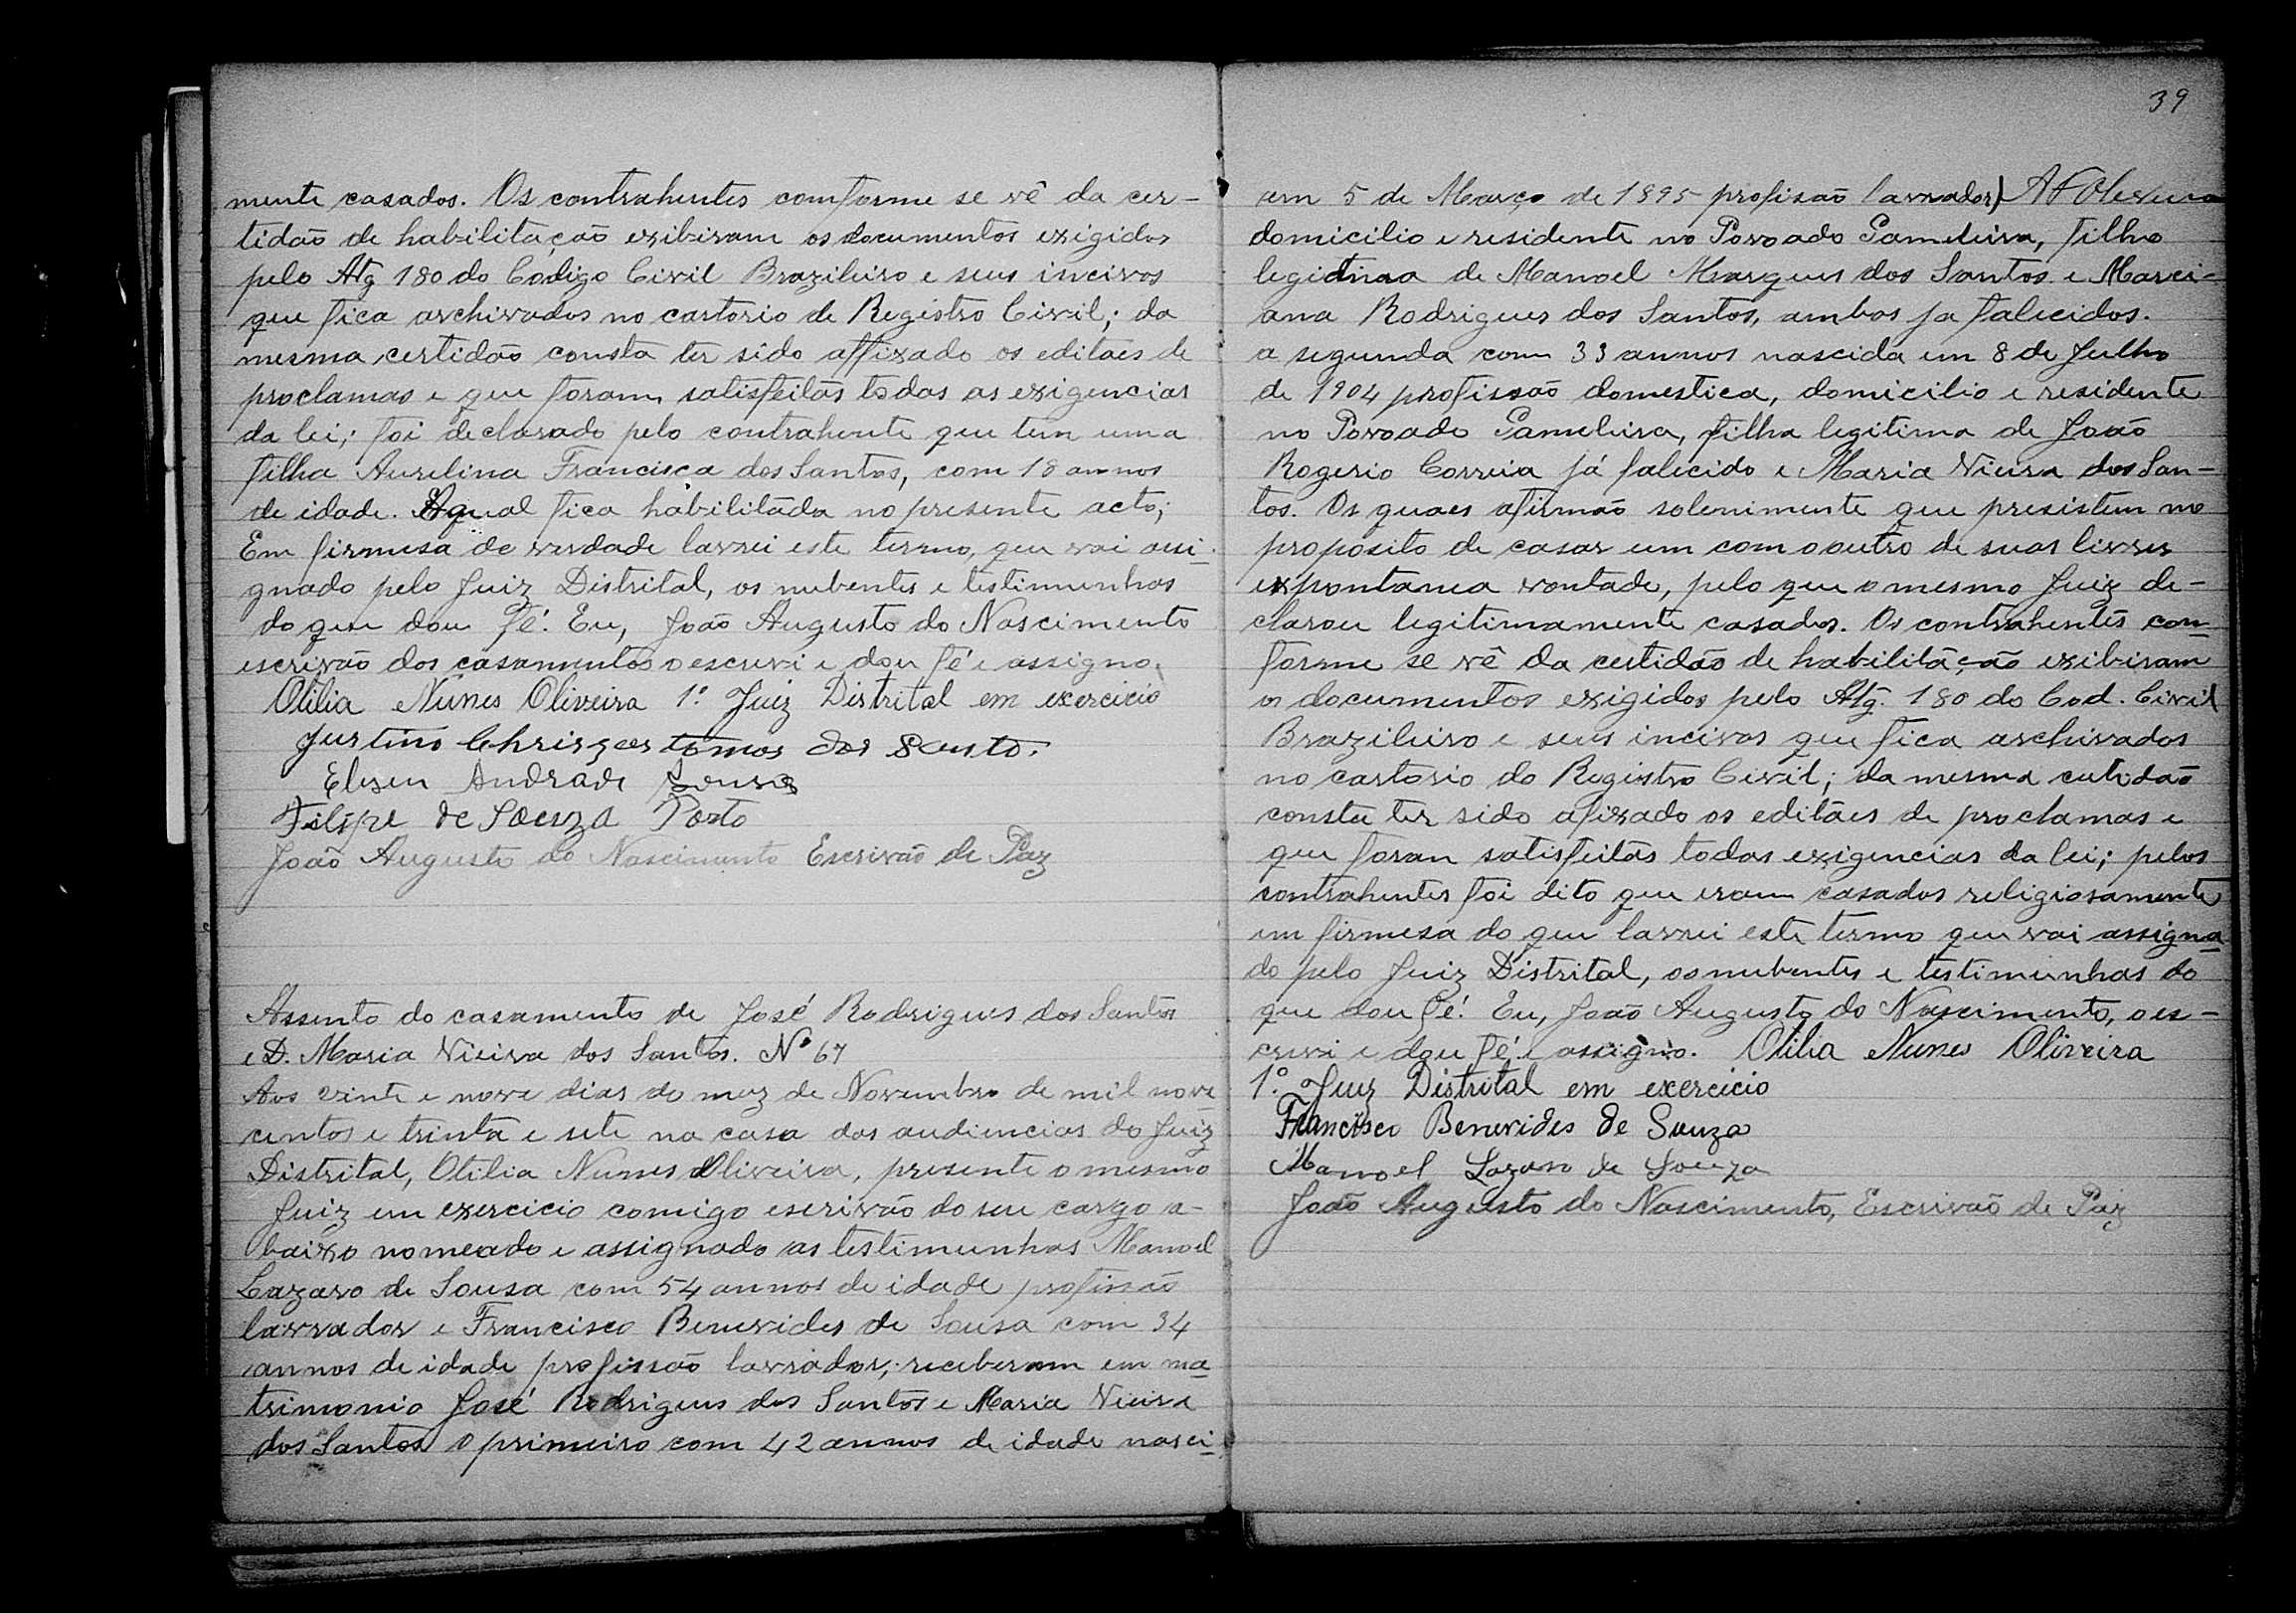 mente casados. Os contrahentes comforme se vê da cer-
tidão de habilitação exibiram os documentos exigidos
pelo Atg 180 do Codigo Civil Brazileiro e seus incivos
que fica archivados no cartorio de Registro Civil; da
mesma certidão consta ter sido affixado os editães de
proclamas e que foram satisfeitas todas as exigencias
da lei; foi declarado pelo contrahente que tem uma
filha Aurelina Francisca dos Santos, com 18 annos
de idade. Aqual fica habilitada no presente acto;
Em firmesa de verdade lavrei este termo, que vai assi-
gnado pelo Juiz Distrital, os nubentes e testimunhas
do que dou fé. Eu, João Augusto do Nascimento
escrivão dos casamentos o escrevi e dou fé e assigno.
Otilia Nunes Oliveira 1º Juiz Distrital em exercicio
Justino dos Santo.
Andrade
Felipe de Souza Porto
João Augusto do Nascimento Escrivão de Paz
Assento do casamento de José Rodrigues dos Santos
e D. Maria Vieira dos Santos. Nº 67
Aos vinte e nove dias do mez de Novembro de mil nove
centos e trinta e sete na casa das audiencias do Juiz
Distrital, Otilia Nunes Oliveira, presente o mesmo
Juiz em exercicio comigo escrivão do seu cargo a-
baixo nomeado e assignado as testimunhas Manoel
Lazaro de Sousa com 54 annos de idade profissão
lavrador e Francisco Benevides de Sousa com 34
annos de idade profissão lavrador; receberam em ma
trimonio José Rodrigues dos Santos e Maria Vieira
dos Santos o primeiro com 42 annos de idade nasci
39
em 5 de Março de 1895 profisão lavrador)
domicilio e residente no Povoado Gameleira, filho
legitimo de Manoel Marques dos Santos e Marci-
ana Rodrigues dos Santos, ambos ja falecidos.
a segunda com 33 annos nascida em 8 de Julho
de 1904 profissão domestica, domicilio e residente
no Povoado Gameleira, filha legitima de João
Rogerio Correia já falecido e Maria Vieira dos San-
tos. Os quaes afirmão solenimente que presistem no
proposito de casar um com o outro de suas livres
expontanea vontade, pelo que o mesmo Juiz de-
clarou legitimamente casados. Os contrahentes con-
forme se vê da certidão de habilitação exibiram
os documentos exigidos pelo Atg. 180 do Cod. Civil
Brazileiro e seus incivos que fica archivados
no cartorio do Registro Civil; da mesma certidão
consta ter sido afixado os editães de proclamas e
que foran satisfeitas todas exigencias da lei; pelos
contrahentes foi dito que eram casados religiosamente
em firmesa do que lavrei este termo que vai assigna
do pelo Juiz Distrital, os nubentes e testimunhas do
que dou fé. Eu, João Augusto do Nascimento, o es-
crevi e dou fé e assigno. Otilia Nunes Oliveira
1º Juiz Distrital em exercicio
Francisco Benevides de Souza
Manoel Lazaro de Souza
João Augusto do Nascimento, Escrivão de Paz